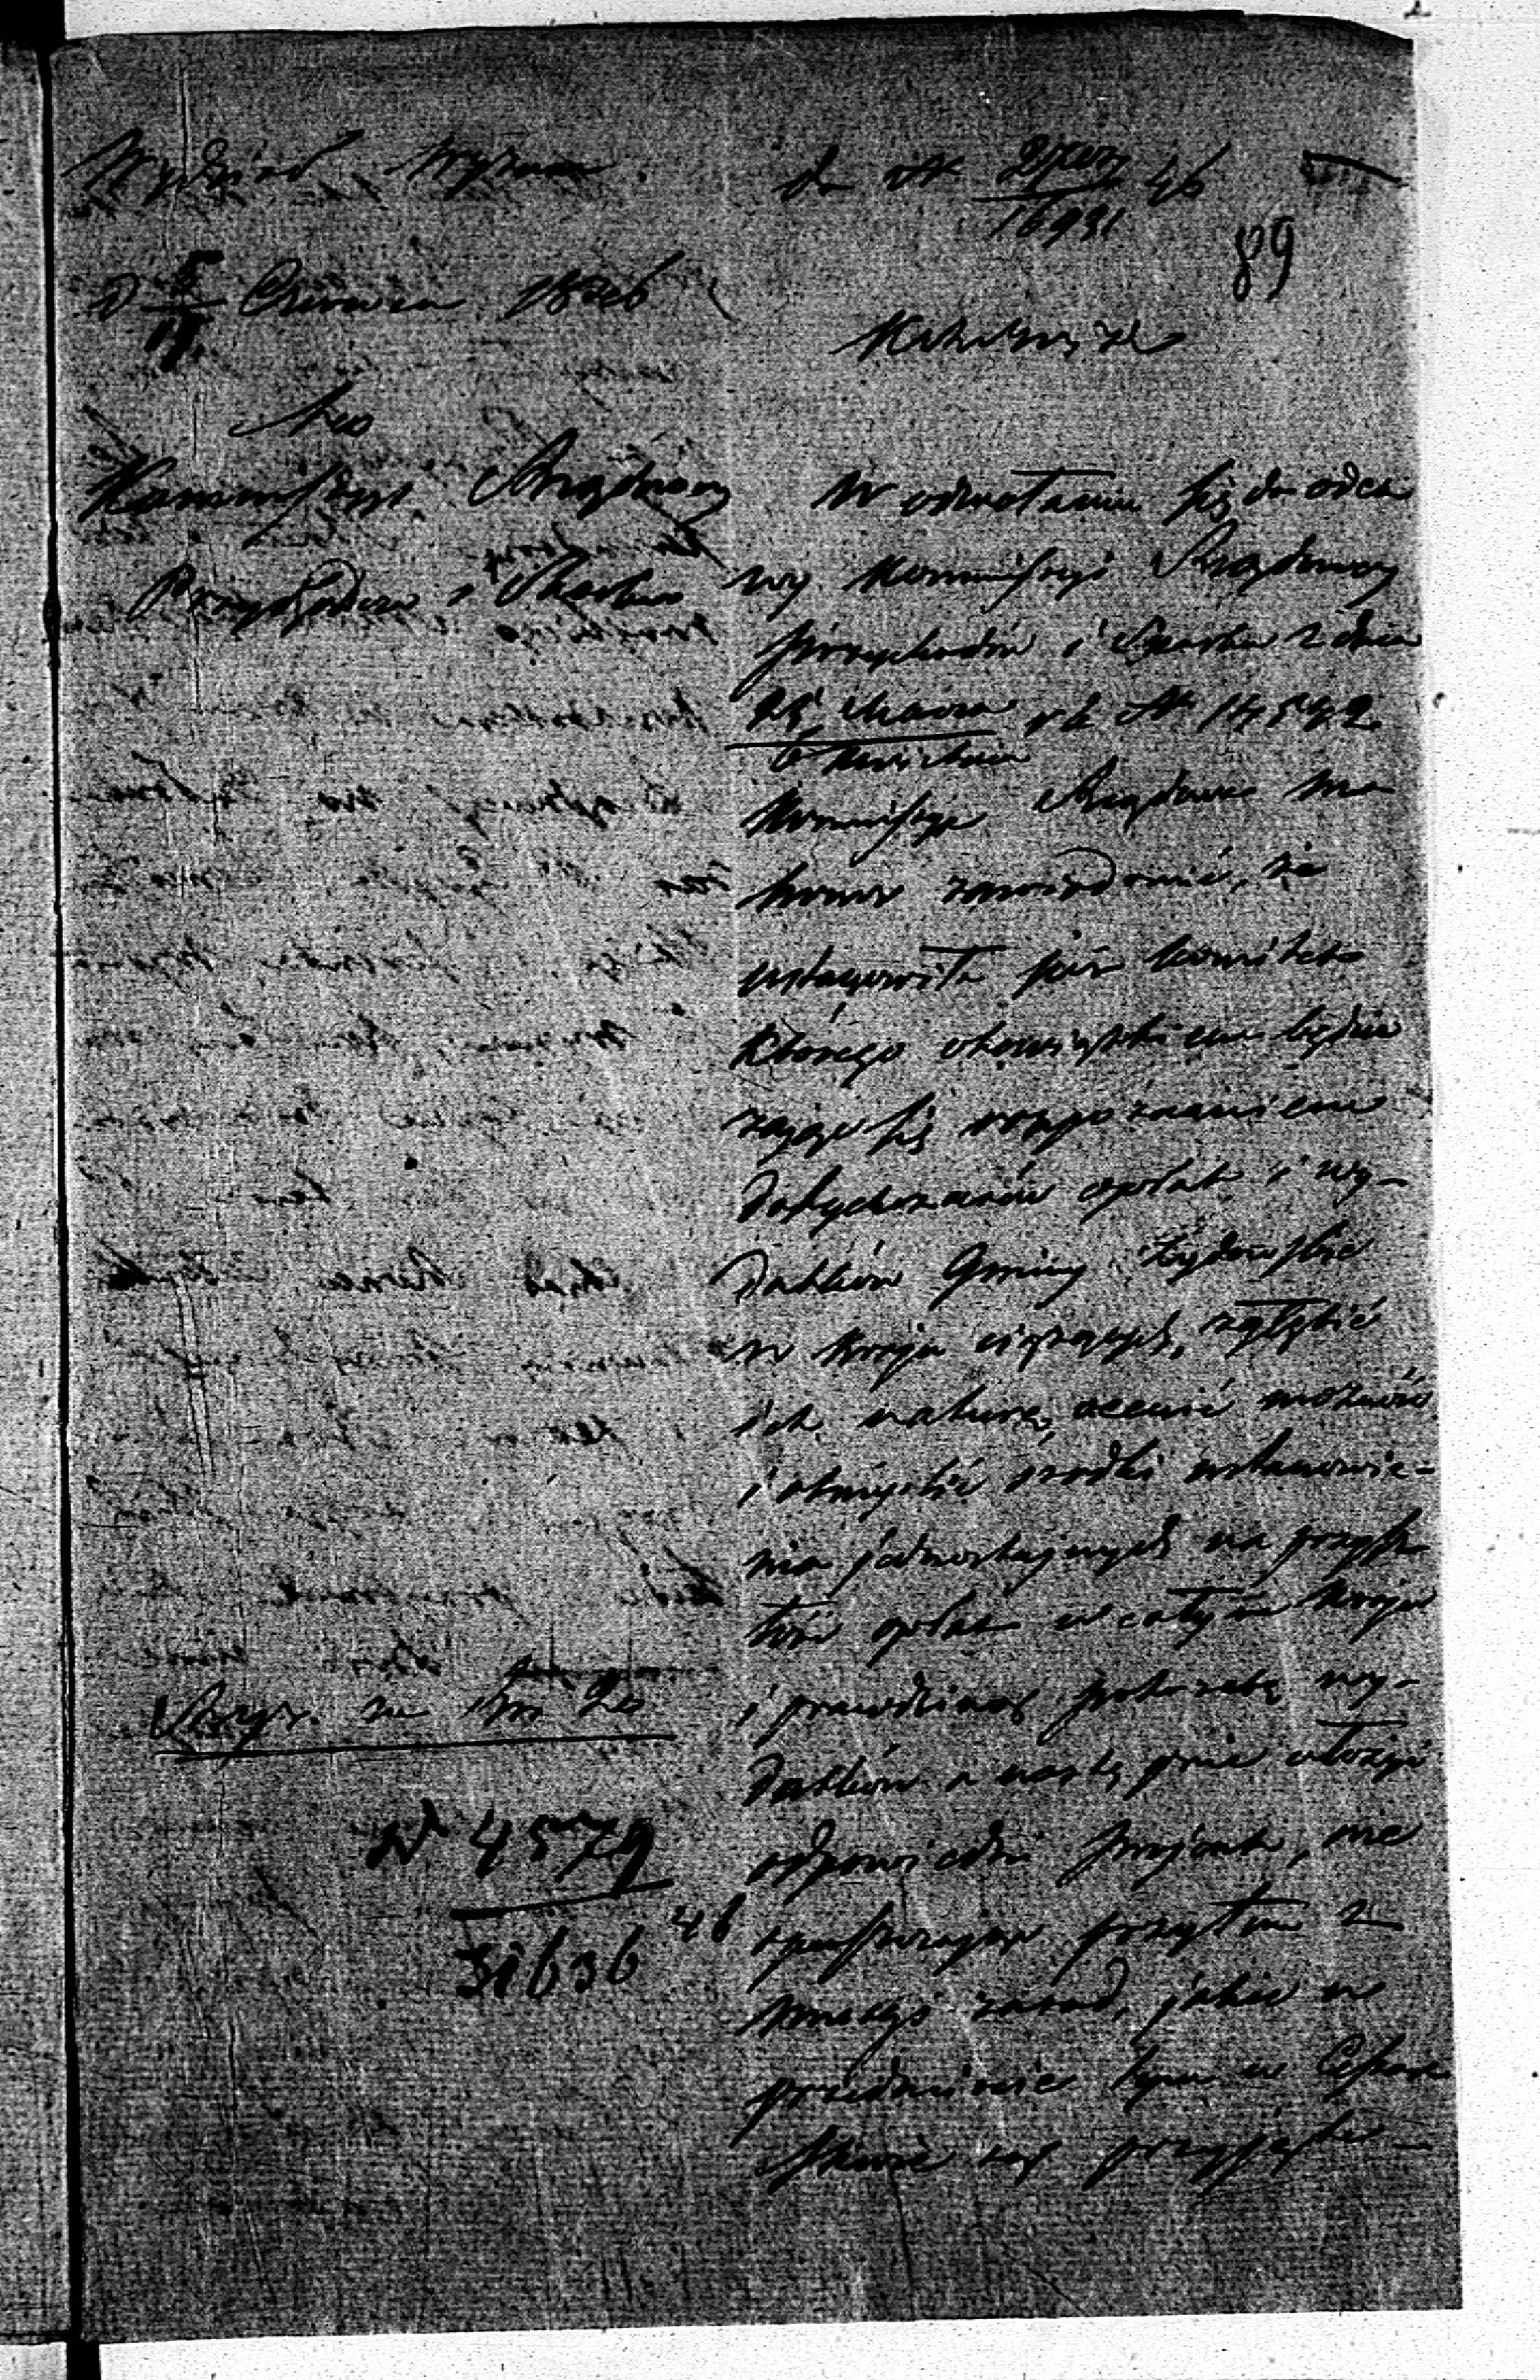 Wydział Wyznań.
do N 2707/16931 46
89
D 5/17 Czerwca 1846
Do
Kommissyi Rządowey
Przychodów i Skarbu
W odwołaniu się do odez-
wy Kommissyi Rządowey
przychodów i Skarbu z dnia
25 Marca / 6 Kwietnia r b N 14542
Kommissya Rządowa ma
honor zawiadomić, że
ustanowiła już komitet
którego obowiązkiem będzie
zająć się rozpoznaniem
dotychczasów opłat i wy-
datków Gminy Żydowskie
w kraju ciążących, zgłębić
ich naturę, ocenić możność
i obmyślić środki ustanowie-
nia jednostajnych na przysz-
łość opłat w całym kraju
i prawdziwą potrzebę wy-
datków a następnie ułożyć
odpowiedni projekt, nie
spuszczając przytem z
uwagi zasad, jakie w
przedmiocie tym w Cesar-
stwie są przyjęte
N 4579/31636 46